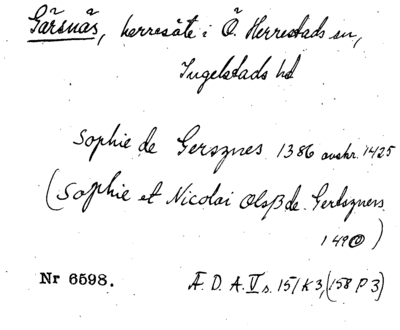 Gärsnäs, herresäte i Ö. Herrestads sn,
Ingelstads hd
Sophie de Gersznes 1386 avskr. 1425
(Sophie et Nicolai Olsß de Gertszners
149@)
Nr 6598. Æ. D. A. V s. 151 K 3, (158 P 3)